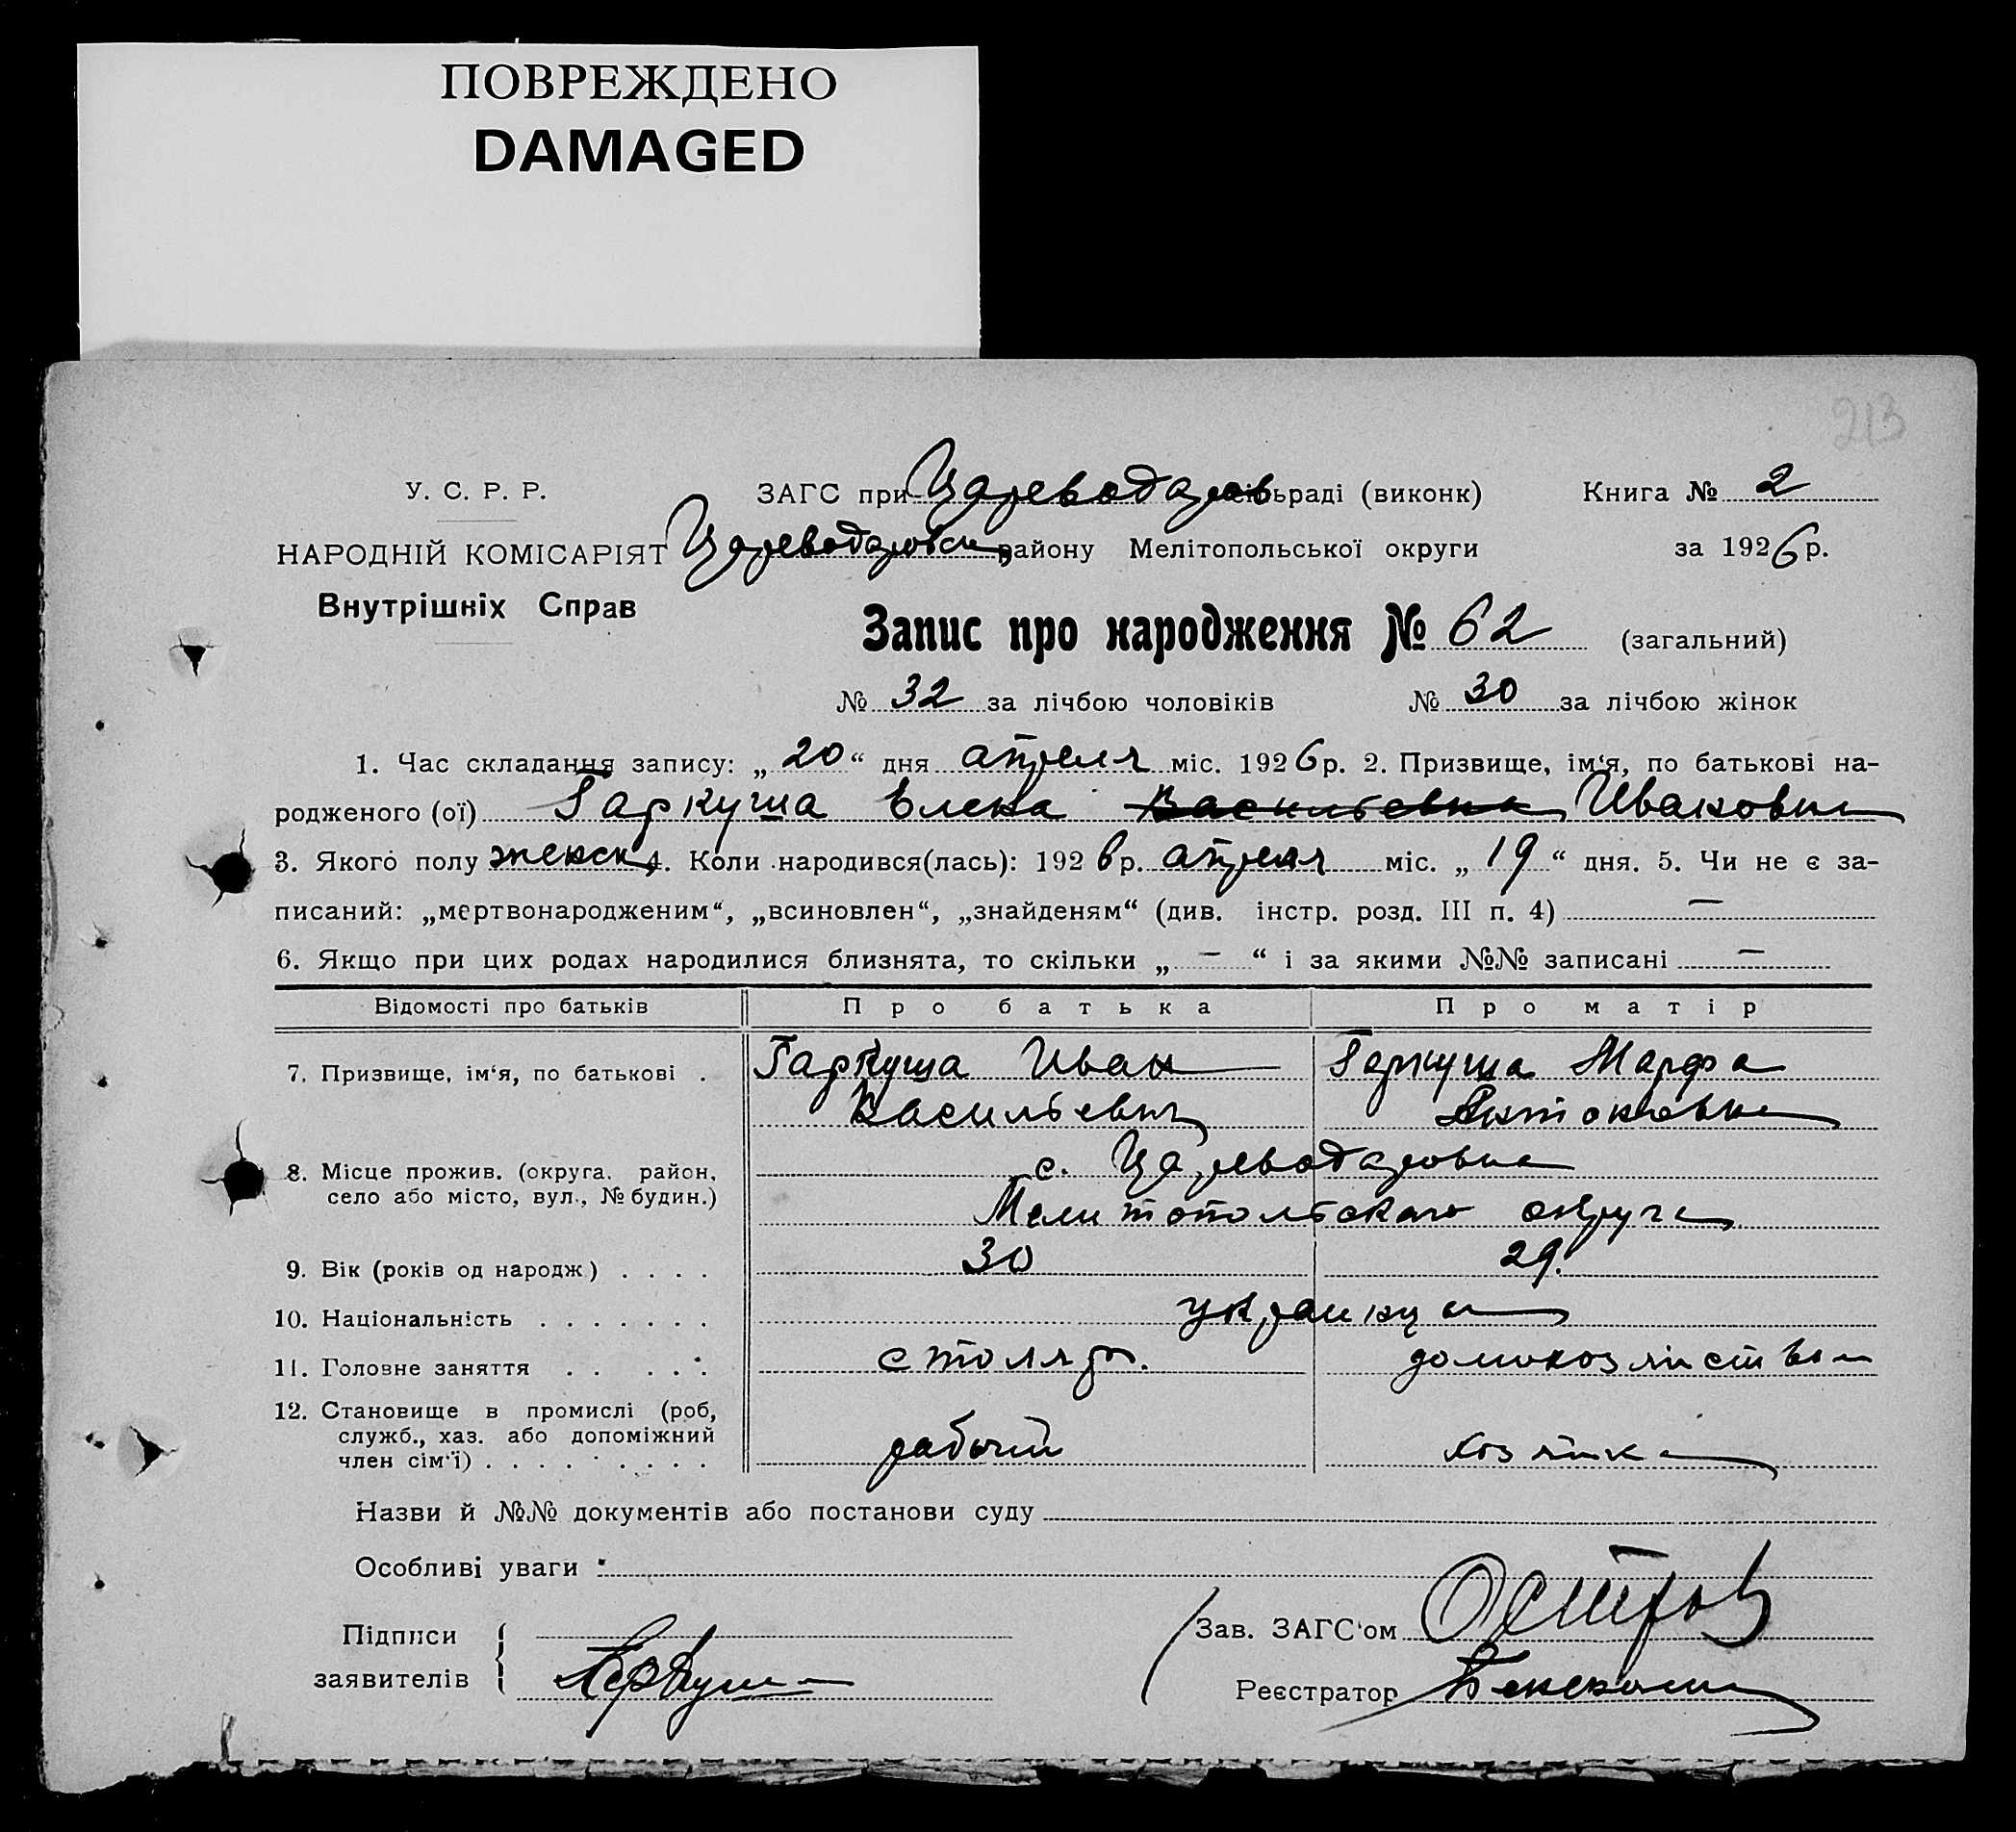 ПОВРЕЖДЕНО
DAMAGED
213
У. С. Р. Р.
ЗАГС при Цареводаров сільраді (виконк)
Книга № 2
НАРОДНІЙ КОМІСАРІЯТ
Цареводаровск району Мелітопольської округи
за 1926 р.
Внутрішніх Справ
Запис про народження № 62 (загальний)
№ 32 за лічбою чоловіків № 30 за лічбою жінок
1. Час складання запису: „ 20 “ дня апреля міс. 1926 р. 2. Призвище, ім‘я, по батькові на-
родженого (ої) Гаркуша Елена Васильевна Ивановна
3. Якого полу женск 4. Коли народився(лась): 1926 р. апреля міс. „ 19 “ дня. 5. Чи не є за-
писаний: „мертвонародженим“, „всиновлен“, „знайденям“ (див. інстр. розд. III п. 4) —
6. Якщо при цих родах народилися близнята, то скільки „ — “ і за якими №№ записані —
Відомості про батьків Про батька Про матір
7. Призвище, ім‘я, по батькові . Гаркуша Иван Гаркуша Марфа
Васильевич Антоновна
8. Місце прожив. (округа, район, с. Цареводаровка
село або місто, вул., № будин.) Мелитопольского округа
9. Вік (років од народж) . . . . 30 29.
10. Національність . . . . . . . украинцы
11. Головне заняття . . . . . столяр. домохозяйством
12. Становище в промислі (роб,
служб., хаз. або допоміжний
член сім‘ї) . . . . . . . . . рабочий хозяйка
Назви й №№ документів або постанови суду
Особливі уваги :
Підписи
заявителів Гаркуша
Зав. ЗАГС‘ом
Реєстратор